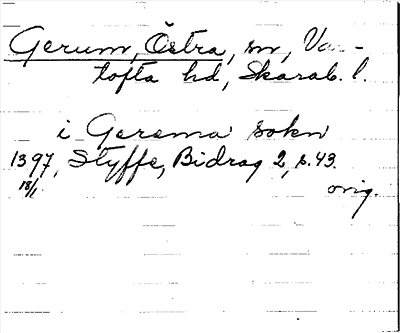 Gerum, Östra, sn, Var-
tofta hd, Skarab. l.
i Gerema sokn
1397, Styffe, Bidrag 2, s. 43.
18/1 orig.